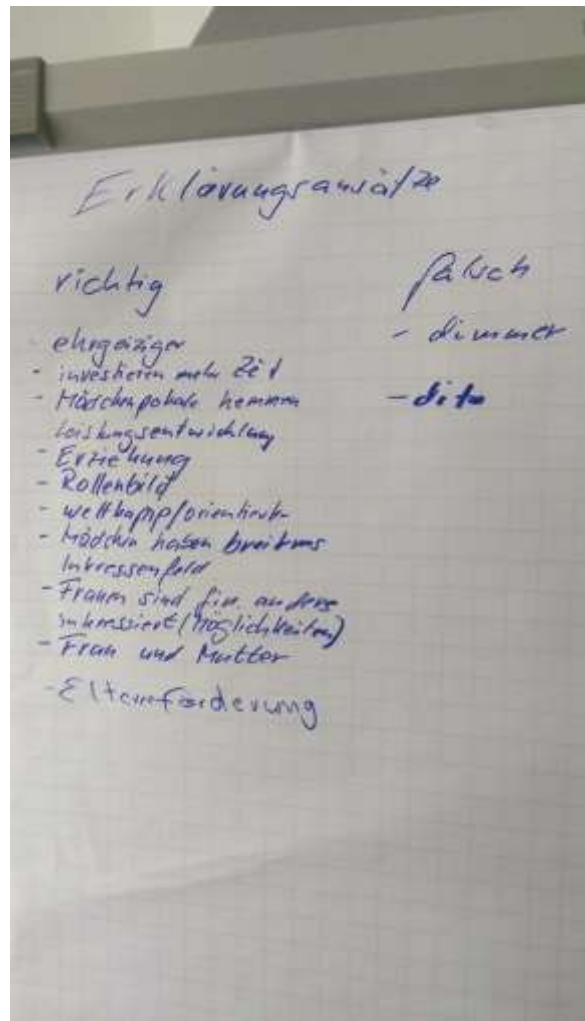 Erklärungsansätze
richtig
falsch
ehrgeiziger
- dümmer
- investieren mehr Zeit
- Mädchenpokale hemmen
- dito
Leistungsentwicklung
- Erziehung
- Rollenbild
- wettkampforientierter
- Mädchen haben breiteres
Interessenfeld
- Frauen sind für anderes
interessiert (Möglichkeiten)
- Frau und Mutter
- Elternförderung